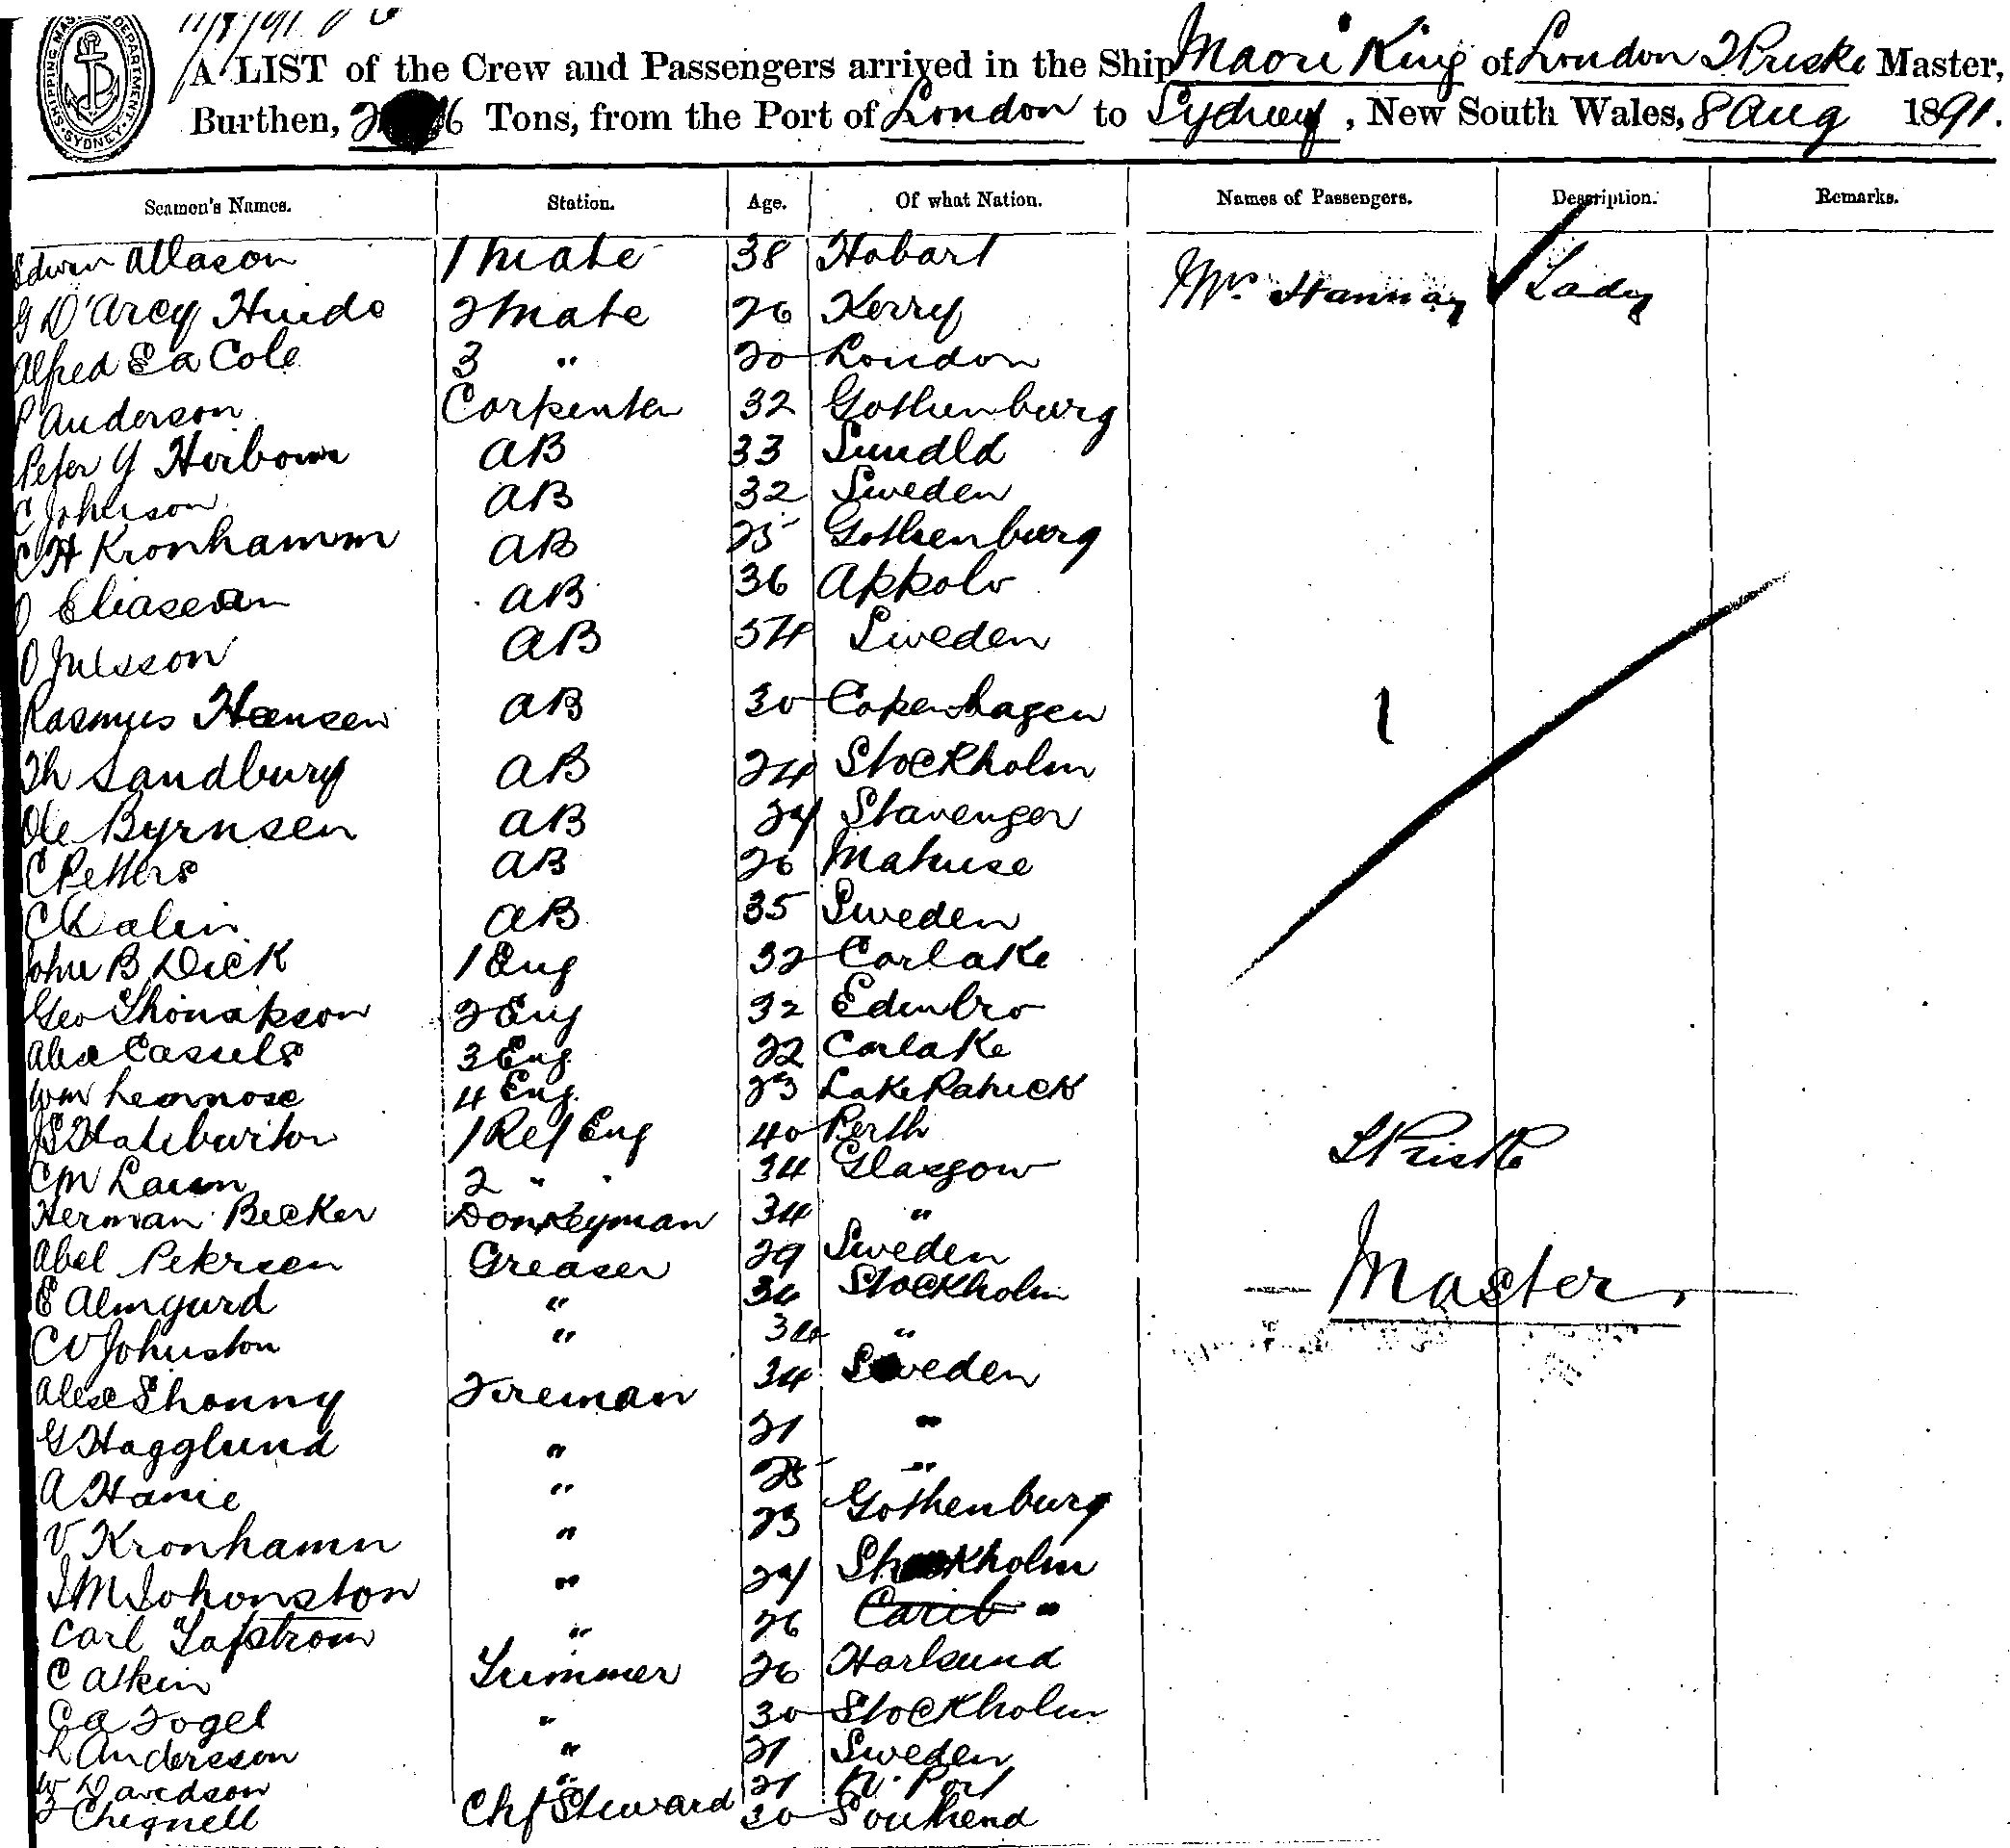 11/8/91
SHIPPING MASTER'S DEPARTMENT SYDNEY
A LIST of the Crew and Passengers arrived in the Ship Maori King of London Master,
Burthen, Tons, from the Port of London to Sydney, New South Wales, 8 Aug 1891.
Seamen's Names. Station. Age. Of what Nation. Names of Passengers. Description. Remarks.
Edwin Allason 1 Mate 38 Hobart
Mrs Hannay Lady
G D'Arcy Hinds 2 Mate 26 Kerry
Alfred E A Cole 3 " 20 London
P Anderson Carpenter 32 Gothenburg
Peter Y AB 33 Sundld
C Johnson AB 32 Sweden
C H Kronhamm AB 25 Gothenburg
O Eliasen AB 36
O AB Sweden
Rasmus Hansen AB 30 Copenhagen
1
Th Sandburg AB 24 Stockholm
Ole Byrnsen AB 24 Stavenger
C Petters AB 26
C Kalin AB 35 Sweden
John B Dick 1 Eng 32 Carlake
Geo Thompson 2 Eng 32 Edinbro
Alex Cassels 3 Eng 22 Carlake
Wm 4 Eng. 23
J S Haliburton 1 Ref Eng 40 Perth
C M 2 " " 34 Glasgow
Herman Becker Donkeyman 34 "
Abel Petersen Greaser 29 Sweden
E Almgurd " 34 Stockholm
Master
C V Johnston " 34 "
Alex Shonny Fireman 34 Sweden
G Hagglund " 21 "
A Hanie " 25 "
V Kronhamn " 23 Gothenburg
J M Johonston " 24 Stockholm
Carl Lafstrom " 26 Carib "
C Atkin Trimmer 26 Harlsund
C A Fogel " 30 Stockholm
L Andersson " 21 Sweden
W Davidson " 21 N. Port
F Chignell Chf Steward 30 Southend